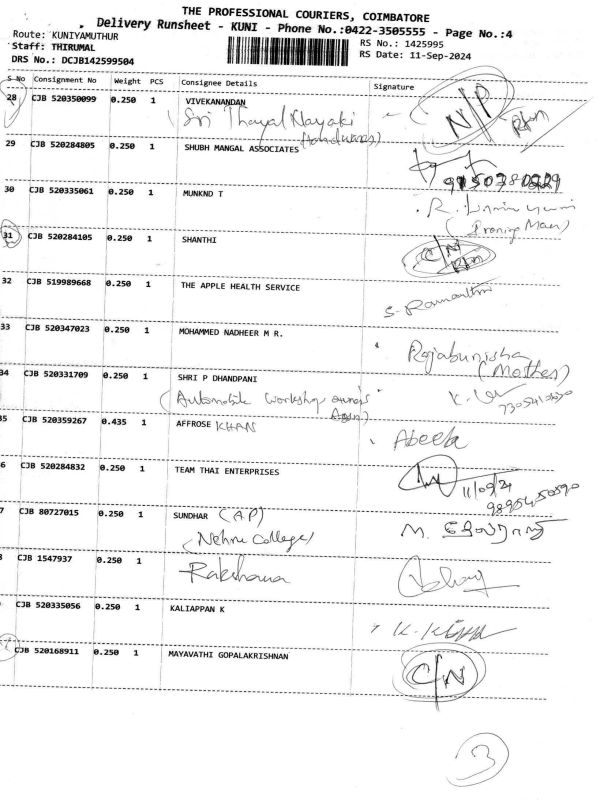 THE PROFESSIONAL COURIERS, COIMBATORE
Delivery Runsheet - KUNI - Phone No.:0422-3505555 - Page No.:4
Route: KUNIYAMUTHUR
RS No.: 1425995
Staff: THIRUMAL
RS Date: 11-Sep-2024
DRS No.: DCJB142599504
S No Consignment No Weight PCS Consignee Details Signature
28 CJB 520350099 0.250 1 VIVEKANANDAN N/P
(Sri Thayal Nayaki
Handwares)
29 CJB 520284805 0.250 1 SHUBH MANGAL ASSOCIATES
30 CJB 520335061 0.250 1 MUNKND T
31 CJB 520284105 0.250 1 SHANTHI C/N
32 CJB 519989668 0.250 1 THE APPLE HEALTH SERVICE
33 CJB 520347023 0.250 1 MOHAMMED NADHEER M R. Rajabunisha
(Mother)
34 CJB 520331709 0.250 1 SHRI P DHANDPANI
(Automobile Workshop owner's
Assn)
35 CJB 520359267 0.435 1 AFFROSE KHAN Abeela
6 CJB 520284832 0.250 1 TEAM THAI ENTERPRISES 11/09/24
9895450590
7 CJB 80727015 0.250 1 SUNDHAR (A.P) M.
(Nehru College)
8 CJB 1547937 0.250 1 Rakshana
CJB 520335056 0.250 1 KALIAPPAN K
CJB 520168911 0.250 1 MAYAVATHI GOPALAKRISHNAN C/N
3